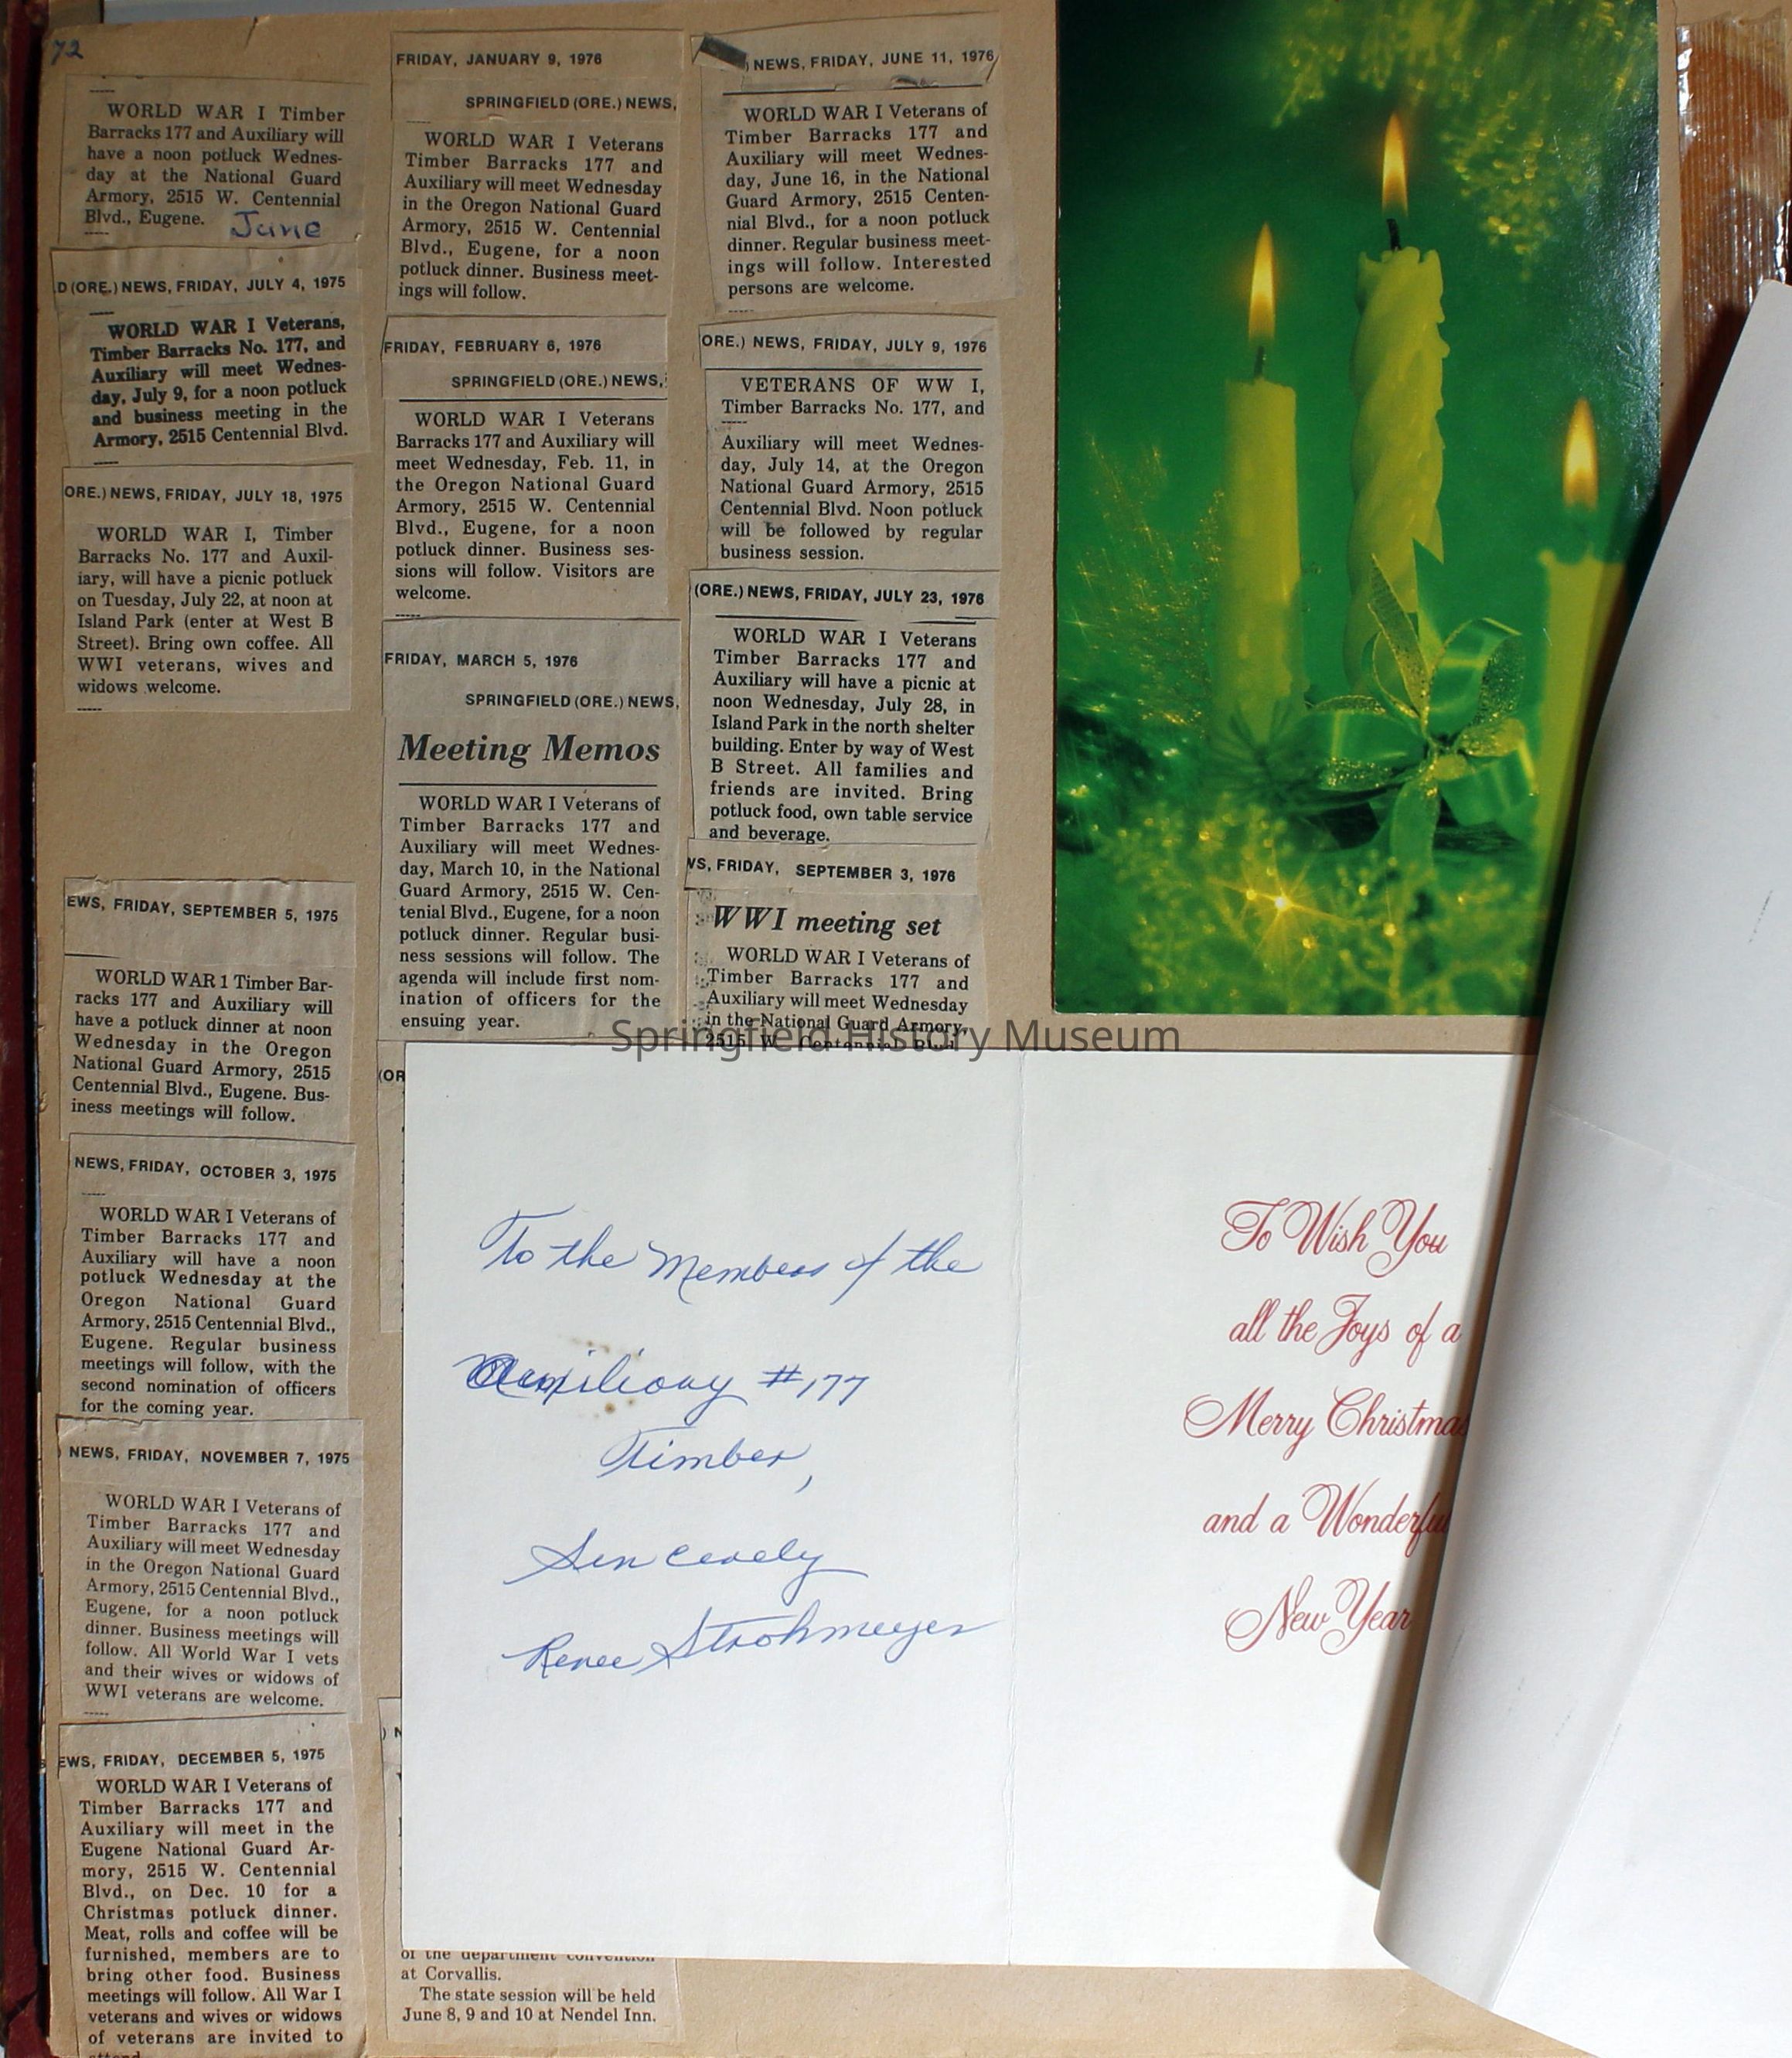 72
WORLD WAR I Timber
Barracks 177 and Auxiliary will
have a noon potluck Wednes-
day at the National Guard
Armory, 2515 W. Centennial
Blvd., Eugene. June
D (ORE.) NEWS, FRIDAY, JULY 4, 1975
WORLD WAR I Veterans,
Timber Barracks No. 177, and
Auxiliary will meet Wednes-
day, July 9, for a noon potluck
and business meeting in the
Armory, 2515 Centennial Blvd.
ORE.) NEWS, FRIDAY, JULY 18, 1975
WORLD WAR I, Timber
Barracks No. 177 and Auxil-
iary, will have a picnic potluck
on Tuesday, July 22, at noon at
Island Park (enter at West B
Street). Bring own coffee. All
WWI veterans, wives and
widows welcome.
EWS, FRIDAY, SEPTEMBER 5, 1975
WORLD WAR 1 Timber Bar-
racks 177 and Auxiliary will
have a potluck dinner at noon
Wednesday in the Oregon
National Guard Armory, 2515
Centennial Blvd., Eugene. Bus-
iness meetings will follow.
NEWS, FRIDAY, OCTOBER 3, 1975
WORLD WAR I Veterans of
Timber Barracks 177 and
Auxiliary will have a noon
potluck Wednesday at the
Oregon National Guard
Armory, 2515 Centennial Blvd.,
Eugene. Regular business
meetings will follow, with the
second nomination of officers
for the coming year.
) NEWS, FRIDAY, NOVEMBER 7, 1975
WORLD WAR I Veterans of
Timber Barracks 177 and
Auxiliary will meet Wednesday
in the Oregon National Guard
Armory, 2515 Centennial Blvd.,
Eugene, for a noon potluck
dinner. Business meetings will
follow. All World War I vets
and their wives or widows of
WWI veterans are welcome.
EWS, FRIDAY, DECEMBER 5, 1975
WORLD WAR I Veterans of
Timber Barracks 177 and
Auxiliary will meet in the
Eugene National Guard Ar-
mory, 2515 W. Centennial
Blvd., on Dec. 10 for a
Christmas potluck dinner.
Meat, rolls and coffee will be
furnished, members are to
bring other food. Business
meetings will follow. All War I
veterans and wives or widows
of veterans are invited to
FRIDAY, JANUARY 9, 1976
SPRINGFIELD (ORE.) NEWS,
WORLD WAR I Veterans
Timber Barracks 177 and
Auxiliary will meet Wednesday
in the Oregon National Guard
Armory, 2515 W. Centennial
Blvd., Eugene, for a noon
potluck dinner. Business meet-
ings will follow.
FRIDAY, FEBRUARY 6, 1976
SPRINGFIELD (ORE.) NEWS,
WORLD WAR I Veterans
Barracks 177 and Auxiliary will
meet Wednesday, Feb. 11, in
the Oregon National Guard
Armory, 2515 W. Centennial
Blvd., Eugene, for a noon
potluck dinner. Business ses-
sions will follow. Visitors are
welcome.
FRIDAY, MARCH 5, 1976
SPRINGFIELD (ORE.) NEWS,
Meeting Memos
WORLD WAR I Veterans of
Timber Barracks 177 and
Auxiliary will meet Wednes-
day, March 10, in the National
Guard Armory, 2515 W. Cen-
tenial Blvd., Eugene, for a noon
potluck dinner. Regular busi-
ness sessions will follow. The
agenda will include first nom-
ination of officers for the
ensuing year.
(OR
) N
of the department convention
at Corvallis.
The state session will be held
June 8, 9 and 10 at Nendel Inn.
) NEWS, FRIDAY, JUNE 11, 1976
WORLD WAR I Veterans of
Timber Barracks 177 and
Auxiliary will meet Wednes-
day, June 16, in the National
Guard Armory, 2515 Centen-
nial Blvd., for a noon potluck
dinner. Regular business meet-
ings will follow. Interested
persons are welcome.
ORE.) NEWS, FRIDAY, JULY 9, 1976
VETERANS OF WW I,
Timber Barracks No. 177, and
Auxiliary will meet Wednes-
day, July 14, at the Oregon
National Guard Armory, 2515
Centennial Blvd. Noon potluck
will be followed by regular
business session.
(ORE.) NEWS, FRIDAY, JULY 23, 1976
WORLD WAR I Veterans
Timber Barracks 177 and
Auxiliary will have a picnic at
noon Wednesday, July 28, in
Island Park in the north shelter
building. Enter by way of West
B Street. All families and
friends are invited. Bring
potluck food, own table service
and beverage.
WS, FRIDAY, SEPTEMBER 3, 1976
WWI meeting set
WORLD WAR I Veterans of
Timber Barracks 177 and
Auxiliary will meet Wednesday
in the National Guard Armory,
2515 W. Centennial Blvd.
Springfield History Museum
To the Members of the
Auxiliary #177
Timber,
Sincerely
Renee Strohmeyer
To Wish You
all the Joys of a
Merry Christmas
and a Wonderful
New Year